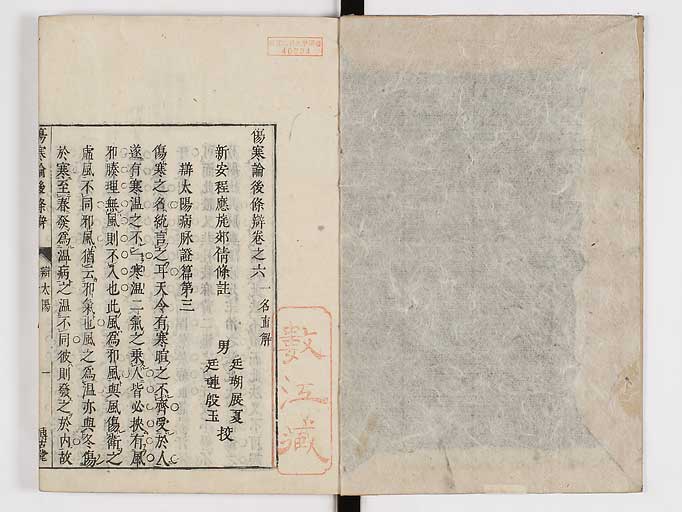 傷寒論後條辨卷之六 一名直解
新安程應旄郊倩條註 男 廷瑚展夏 廷璉殷玉 挍
辨太陽病脉證篇第三
傷寒之名統言之耳天令有寒暄之不齊受於人
遂有寒温之不一寒温二氣之乗人皆必挾有風
邪腠理無風則不入也此風為邪風與風傷衛之
虛風不同邪風猶云邪氣也風之為温亦與冬傷
於寒至春發為温病之温不同彼則發之於内故
傷寒論後條辨
辨太陽
一
40294
數江藏